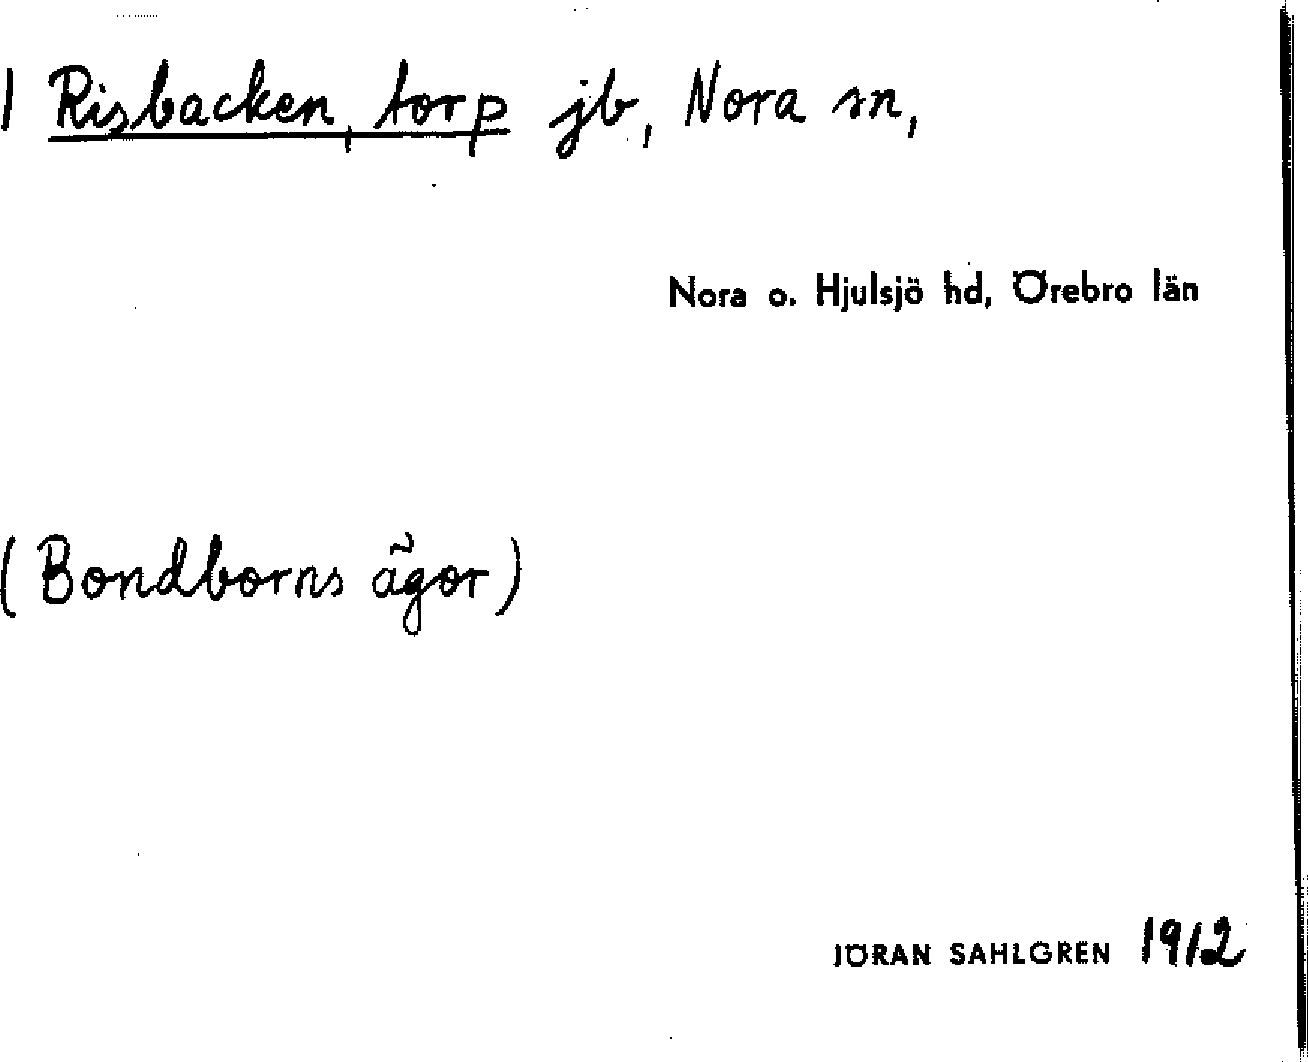 | Risbacken, torp jb, Nora sn,
Nora o. Hjulsjö hd, Örebro län
(Bondborns ägor)
JÖRAN SAHLGREN 1912